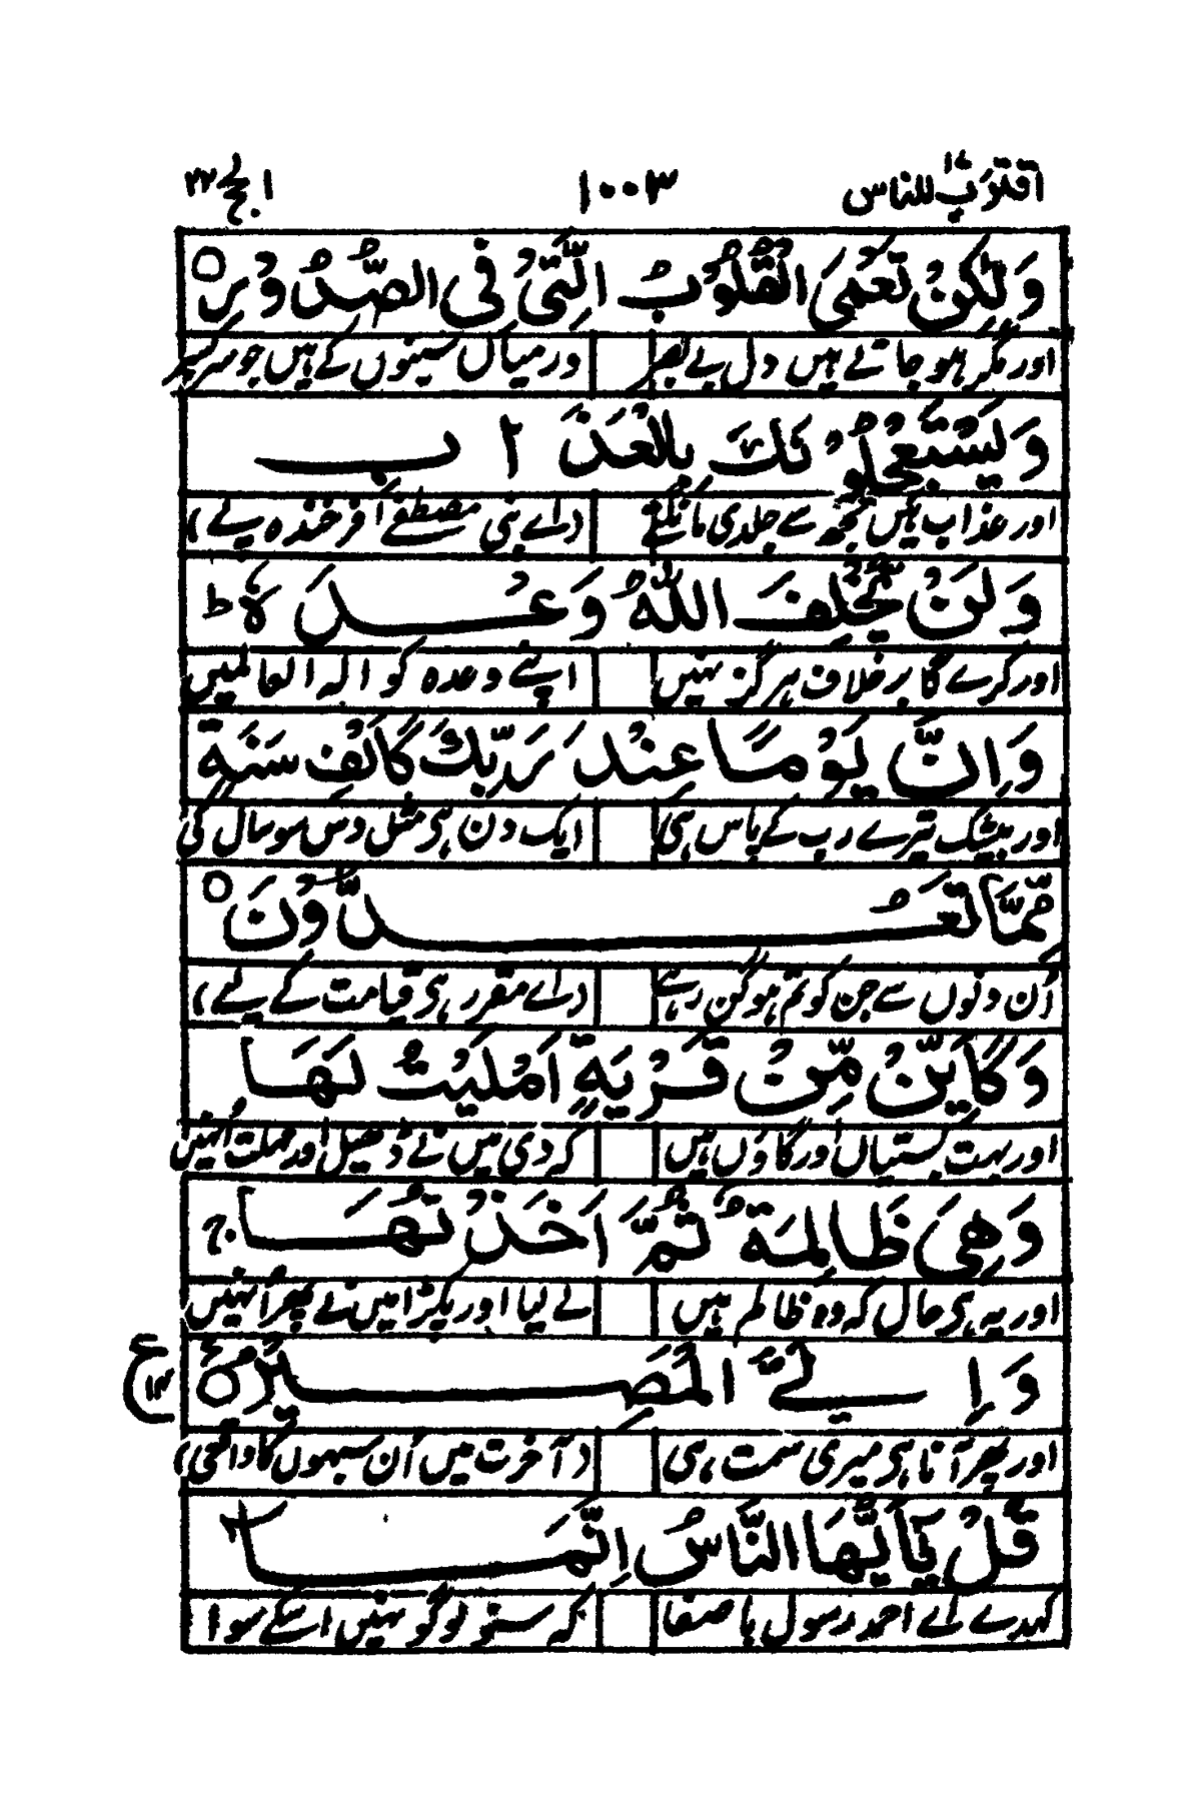 اقترب للناس ١٧ ١٠٠٣ الحج ٢٢
وَلٰكِنْ تَعْمَى الْقُلُوْبُ الَّتِیْ فِی الصُّدُوْرِ ○
اور مگر ہو جاتے ہیں دل بے بصر درمیاں سینوں کے ہیں جو سر بسر
وَیَسْتَعْجِلُوْنَكَ بِالْعَذَابِ
اور عذاب ہیں تجھ سے جلدی مانگتے (اے نبی مصطفےٰ فرخندہ پے)
وَلَنْ یُّخْلِفَ اللّٰهُ وَعْدَهٗ ؕ
اور کرے گا بر خلاف ہرگز نہیں اپنے وعدہ کو الہ العالمیں
وَاِنَّ یَوْمًا عِنْدَ رَبِّكَ كَاَلْفِ سَنَةٍ
اور بیشک تیرے رب کے پاس ہی ایک دن ہی مثل دس سو سال کی
مِّمَّا تَعُدُّوْنَ ○
اُن دنوں سے جن کو تم ہو گن رہے (اے مقرر ہی قیامت کے لیے)
وَكَاَیِّنْ مِّنْ قَرْیَةٍ اَمْلَیْتُ لَهَا
اور بہت بستیاں اور گاؤں ہیں کہ دی میں نے ڈھیل اور مہلت اُنہیں
وَهِیَ ظَالِمَةٌ ثُمَّ اَخَذْتُهَا ۚ
اور یہ ہی حال کہ وہ ظالم ہیں لے لیا اور پکڑا میں نے پھر اُنہیں
وَاِلَیَّ الْمَصِیْرُ ○ ع
ع ١٣
اور پھر آنا ہی میری سمت ہی (آخرت میں اُن سبہوں کا واقعی)
قُلْ یٰۤاَیُّهَا النَّاسُ اِنَّمَاۤ
کہدے اے احمد رسول باصفا کہ سنو لوگو نہیں اسکے سوا